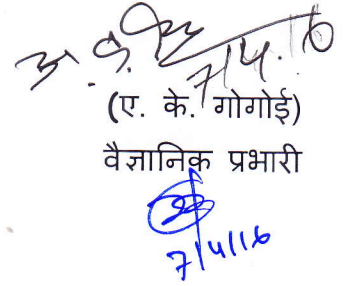 7/4.16
(ए. के. गोगोई)
वैज्ञानिक प्रभारी
7/4/16